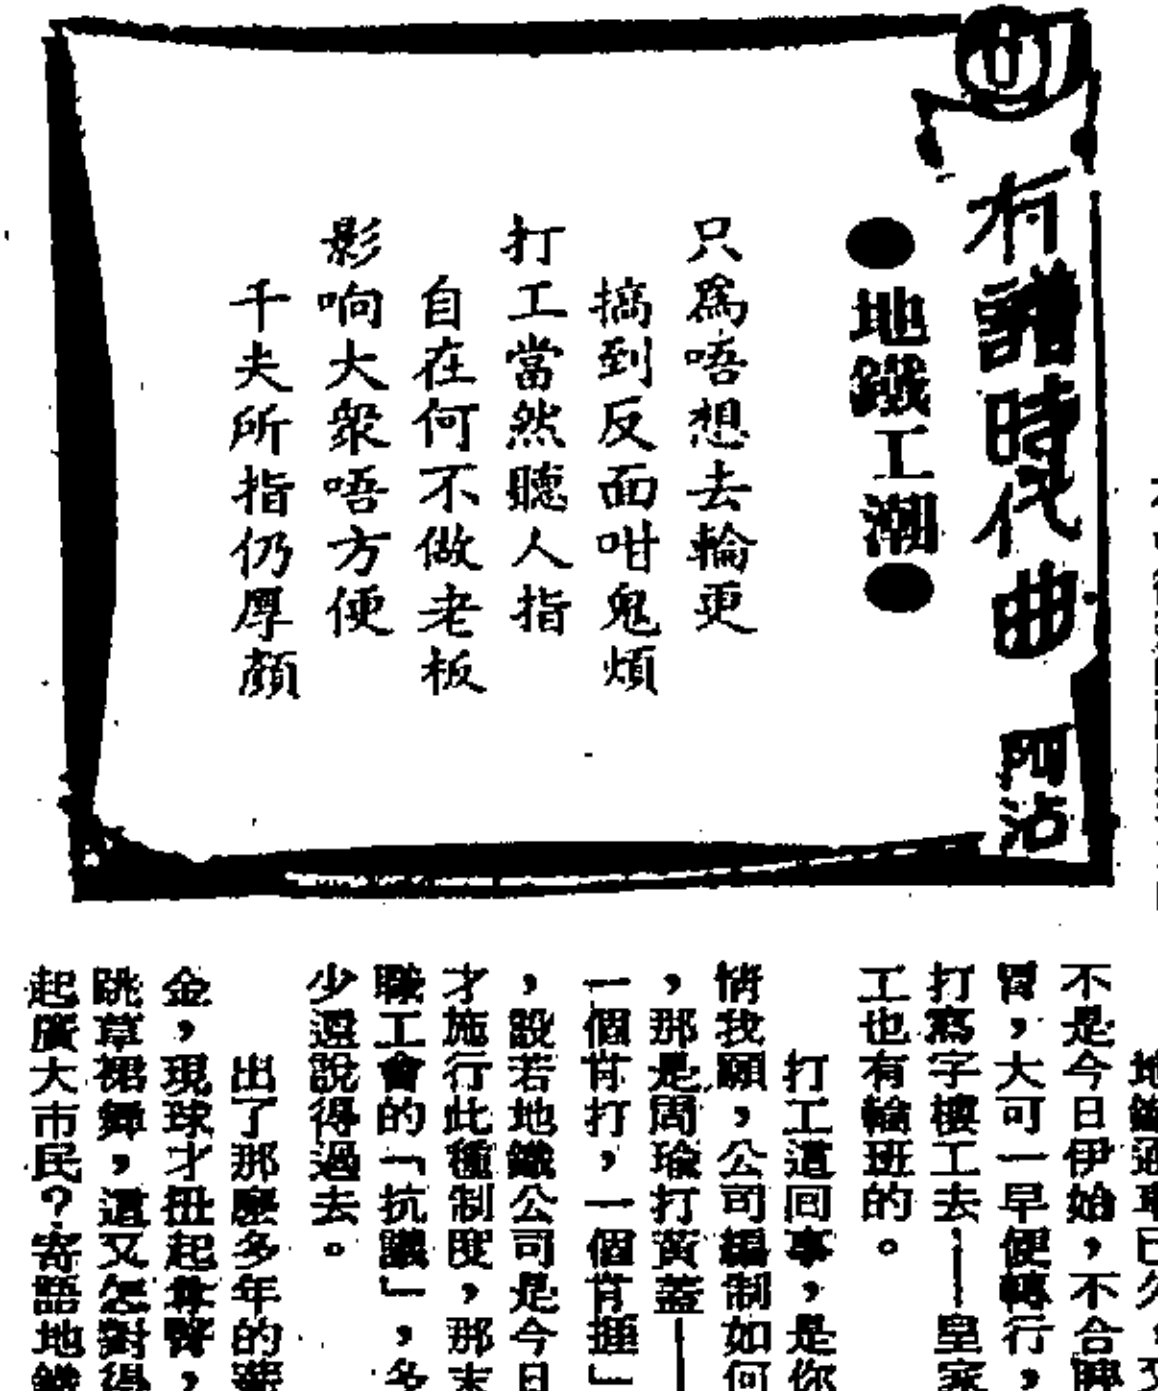 有譜時代曲 阿沾
●地鐵工潮●
只為唔想去輪更
搞到反面咁鬼煩
打工當然聽人指
自在何不做老板
影响大衆唔方便
千夫所指仍厚顏
地鐵通車已久,又
不是今日伊始,不合脾
胃,大可一早便轉行,
打寫字樓工去——皇家
工也有輪班的。
打工這回事,是你
情我願,公司編制如何
,那是周瑜打黃蓋——
一個肯打,一個肯捱」
,設若地鐵公司是今日
才施行此種制度,那末
職工會的「抗議」,多
少還說得過去。
出了那麼多年的薪
金,現球才扭起尊臀,
跳草裙舞,這又怎對得
起廣大市民?寄語地鐵